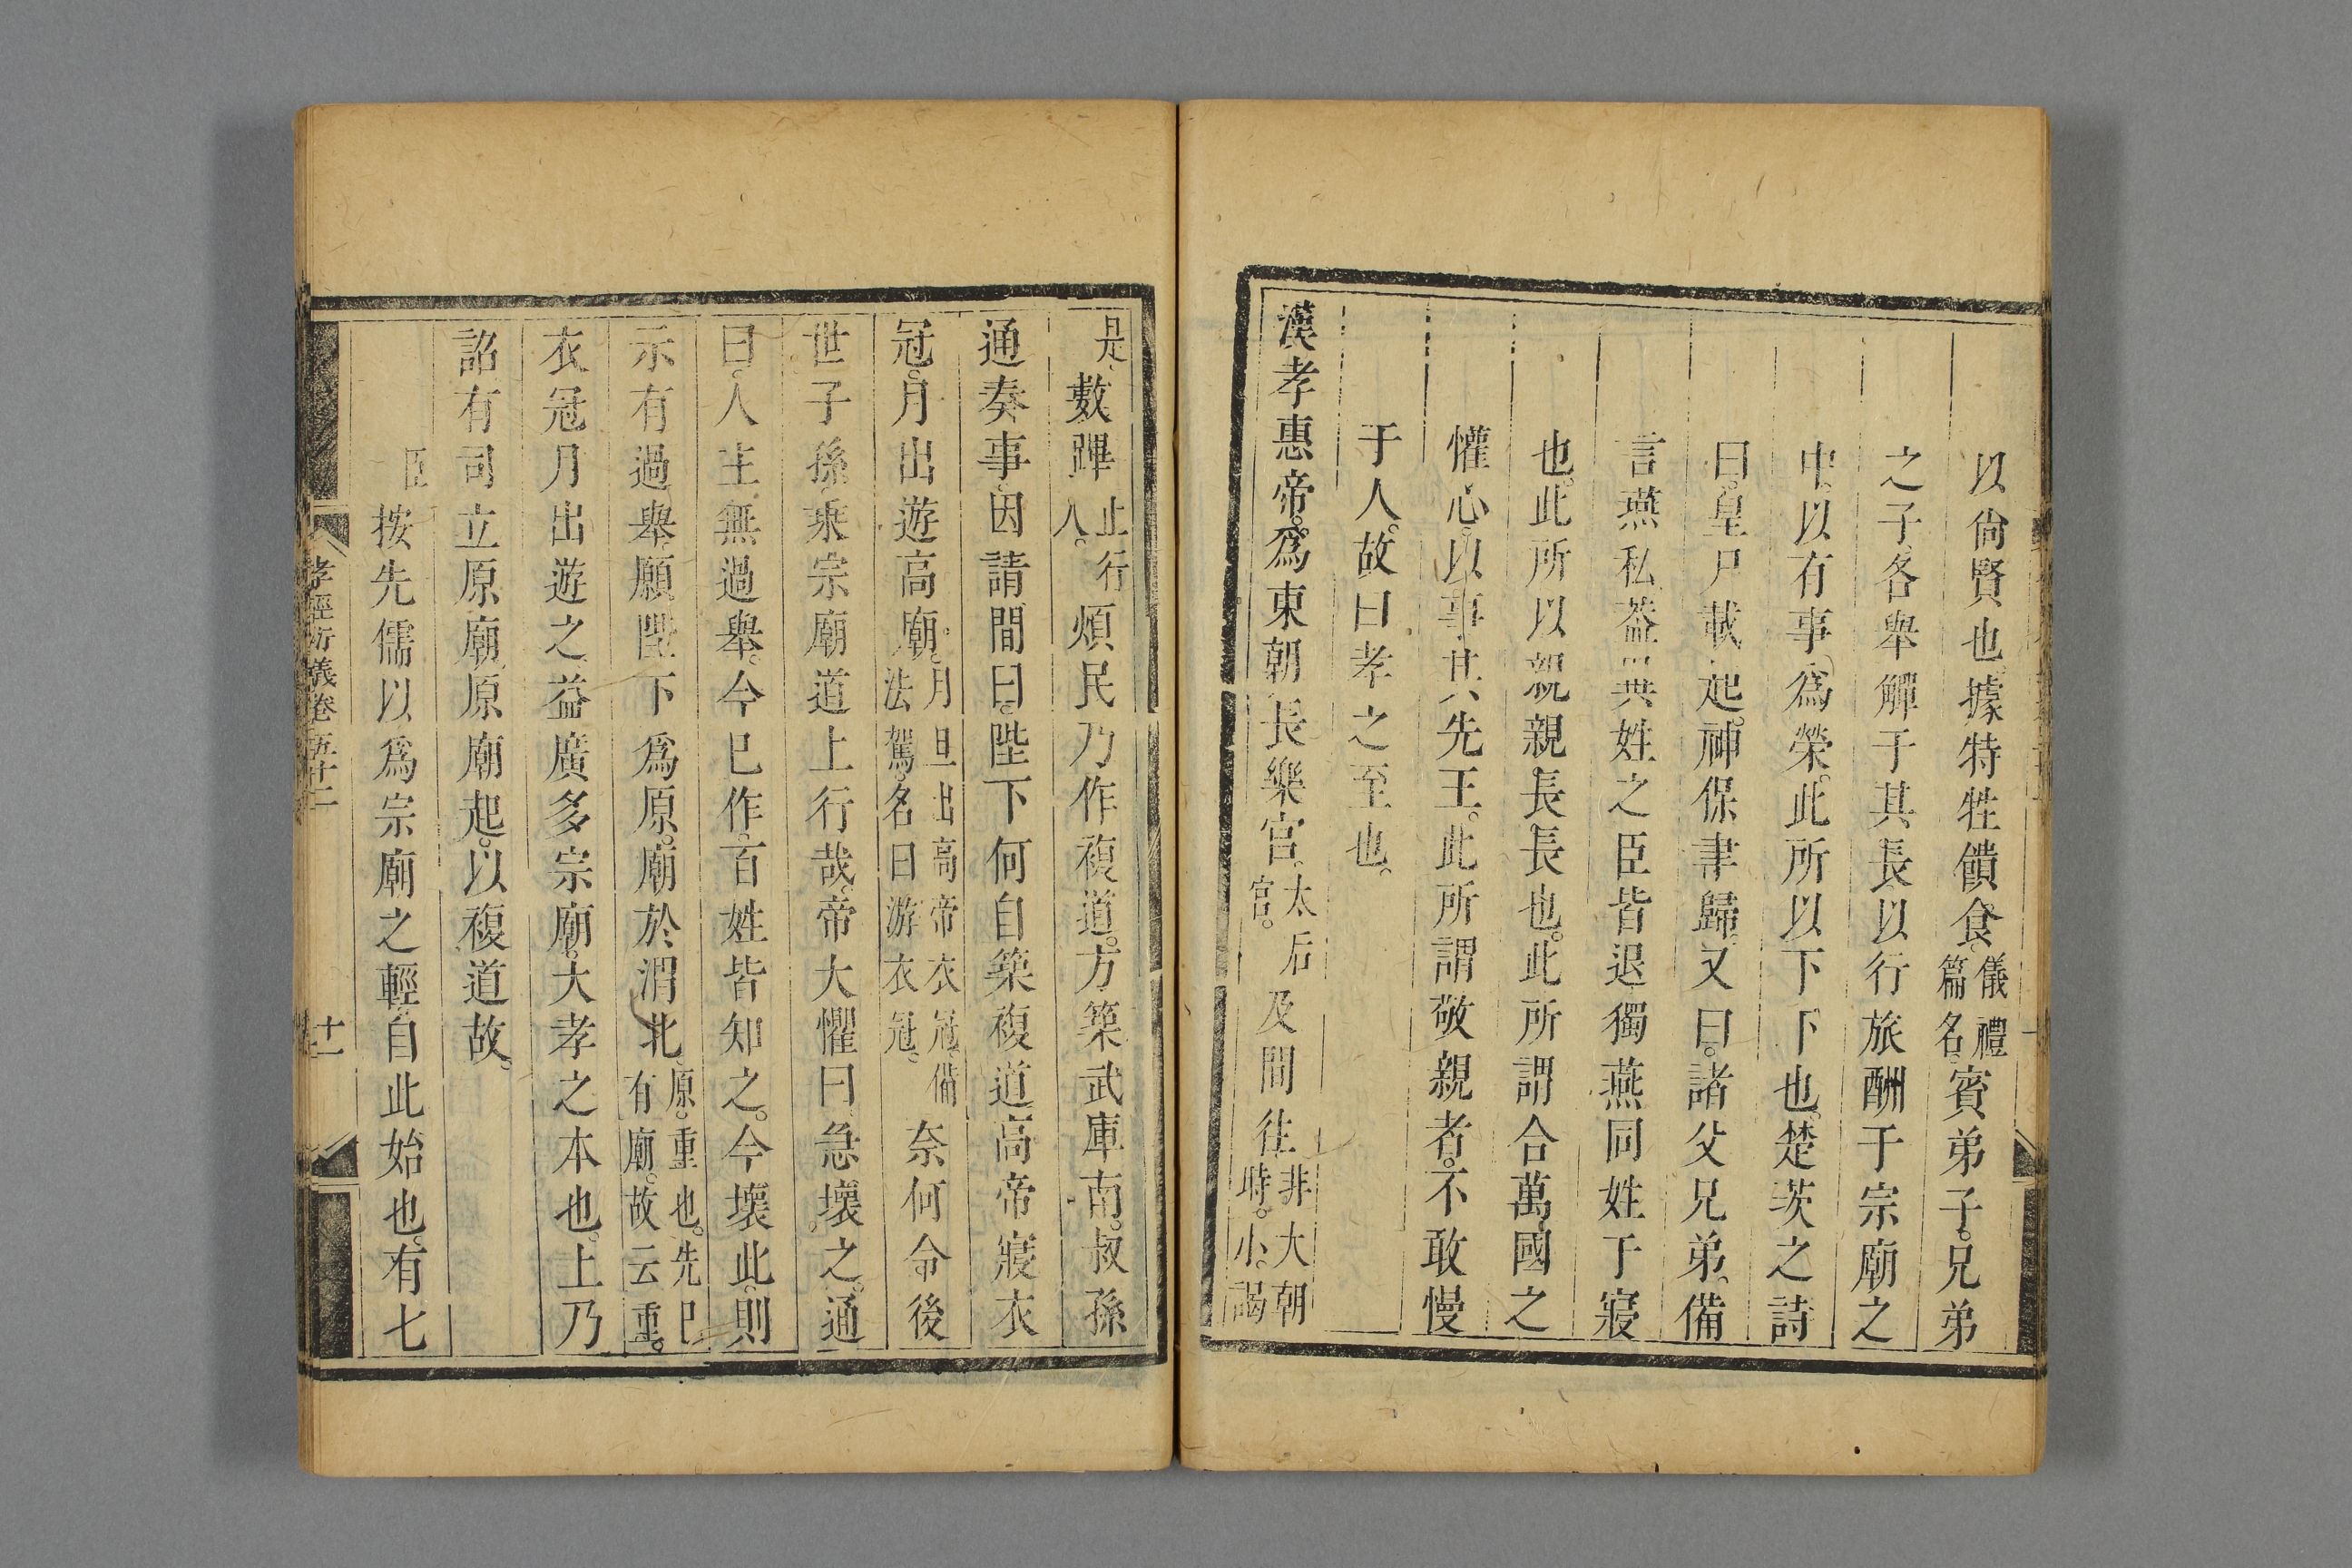 以尙賢也據特牲饋食儀禮篇名賓弟子兄弟
之子各舉觶于其長以行旅酬于宗廟之
中以有事爲榮此所以下下也楚茨之詩
曰皇尸載起神保聿歸又曰諸父兄弟備
言燕私蓋異姓之臣皆退獨燕同姓于寢
也此所以親親長長也此所謂合萬國之
懽心以事其先王此所謂敬親者不敢慢
于人故曰孝之至也
漢孝惠帝爲東朝長樂宮太后宮及間往非大朝時小謁
是數蹕止行人煩民乃作複道方築武庫南叔孫
通奏事因請間曰陛下何自築複道高帝寢衣
冠月出遊高廟月旦出高帝衣冠備法駕名曰游衣冠奈何令後
世子孫乘宗廟道上行哉帝大懼曰急壞之通
曰人主無過舉今已作百姓皆知之今壞此則
示有過舉願陛下爲原廟於渭北原重也先已有廟故云重
衣冠月出遊之益廣多宗廟大孝之本也上乃
詔有司立原廟原廟起以複道故
臣按先儒以爲宗廟之輕自此始也有七
孝經衍義卷五十二 十二